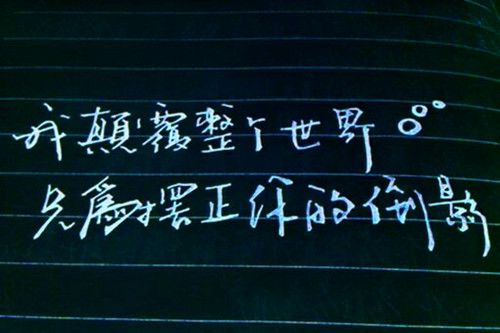 我顛覆整个世界。
只爲擺正你的倒影